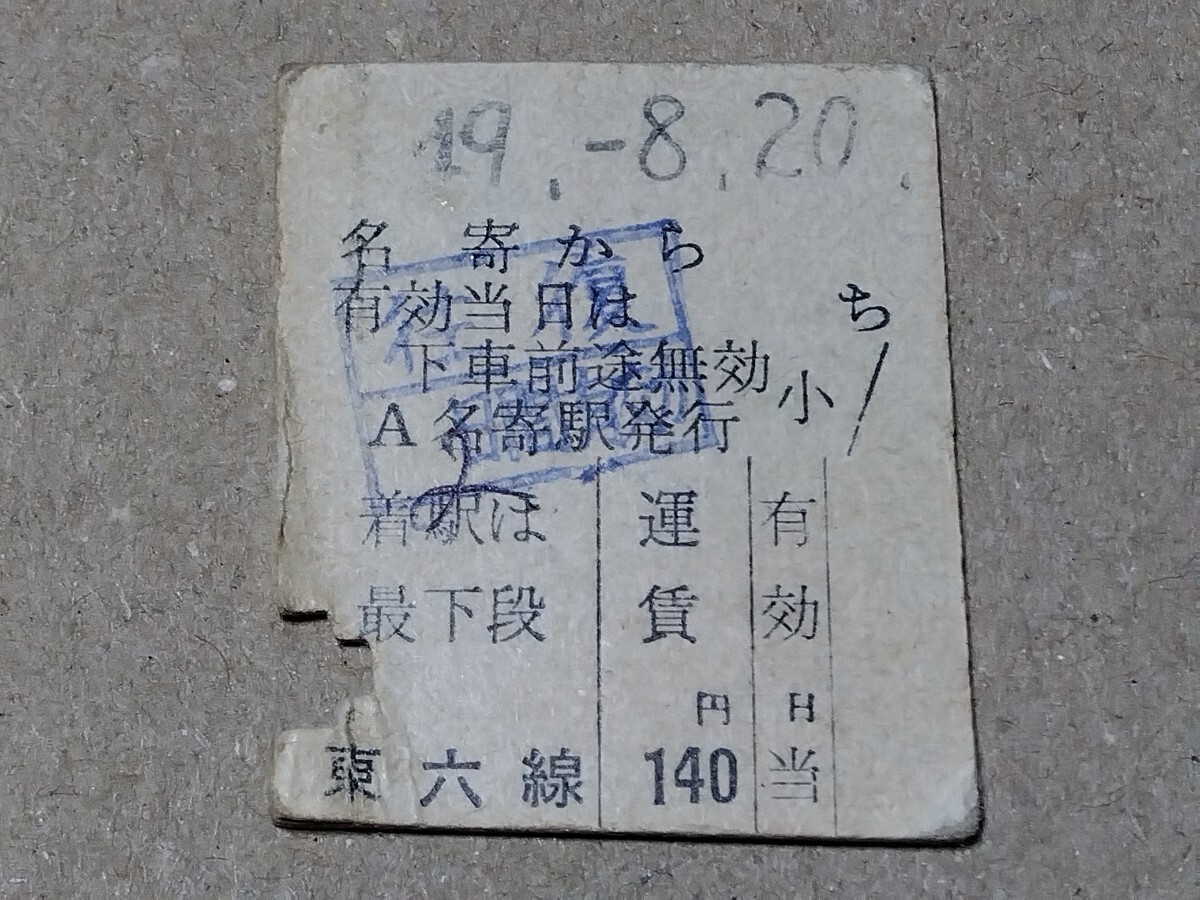 19.-8.20.
名寄から
有効当日は ち
下車前途無効 小
A名寄駅発行
着駅は 運 有
最下段 賃 効
円 日
東六線 140 当